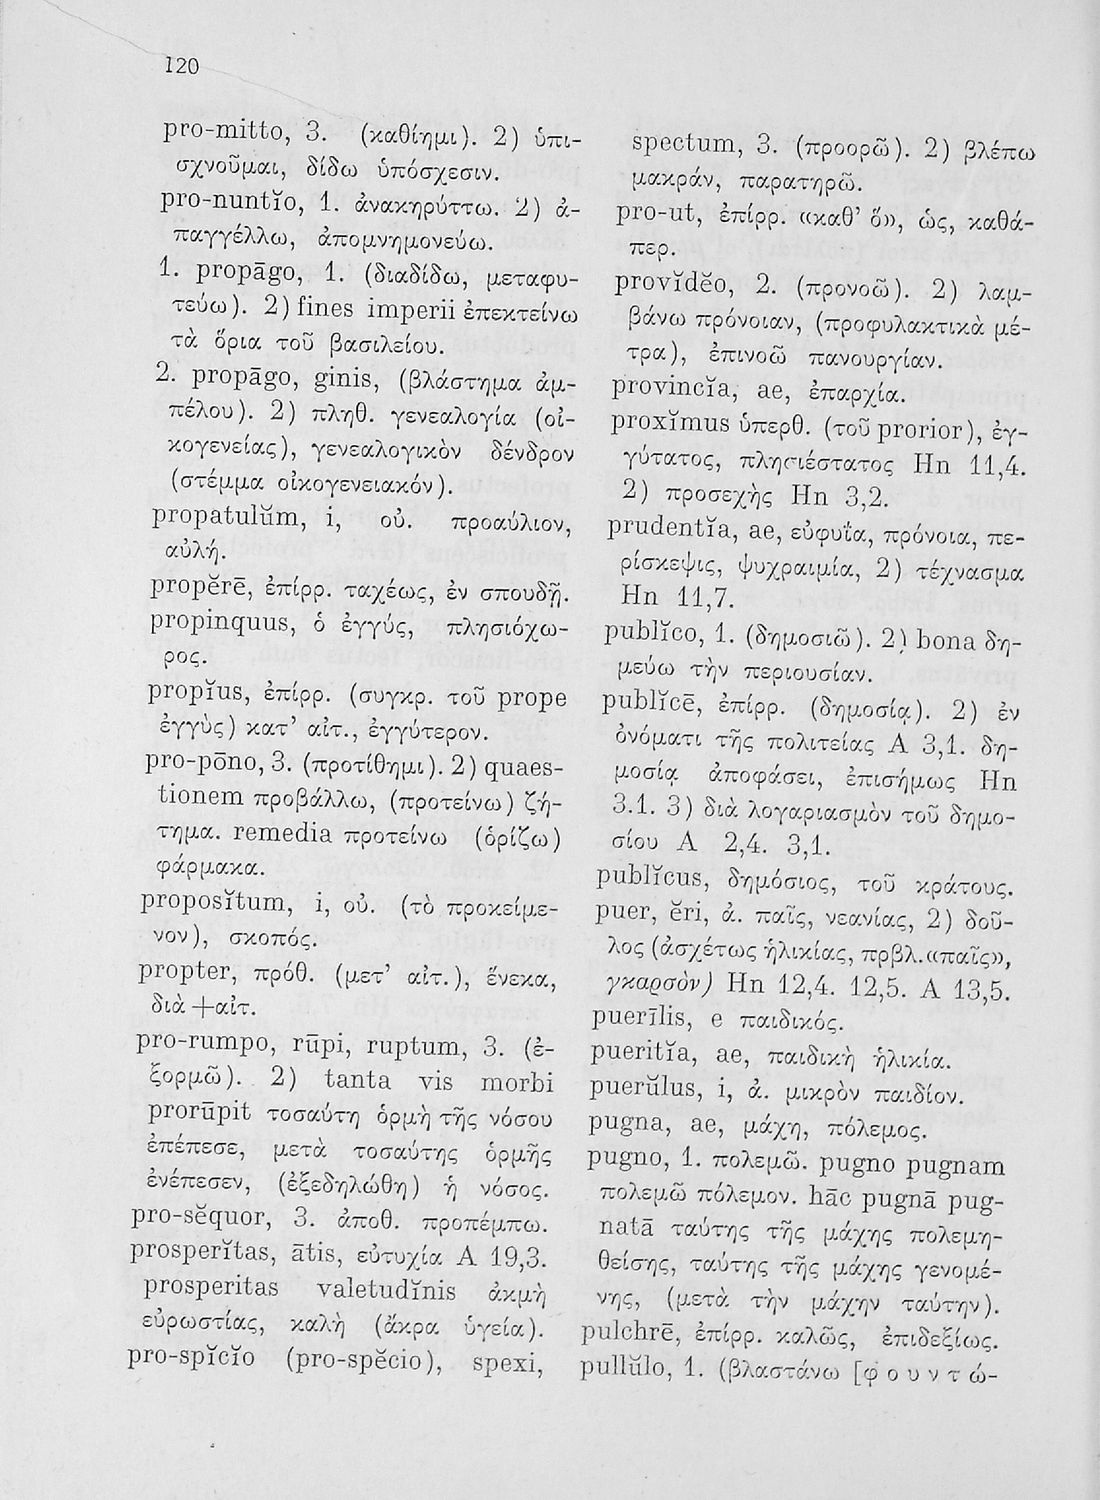 120
pro-mitto, 3. (καθίημι). 2) ὑπι-
σχνοῦμαι, δίδω ὑπόσχεσιν.
pro-nuntĭo, 1. ἀνακηρύττω. 2) ἀ-
παγγέλλω, ἀπομνημονεύω.
1. propāgo, 1. (διαδίδω, μεταφυ-
τεύω). 2) fines imperii ἐπεκτείνω
τὰ ὅρια τοῦ βασιλείου.
2. propāgo, ginis, (βλάστημα ἀμ-
πέλου). 2) πληθ. γενεαλογία (οἰ-
κογενείας), γενεαλογικὸν δένδρον
(στέμμα οἰκογενειακόν).
propatulŭm, i, οὐ. προαύλιον,
αὐλή.
propĕrē, ἐπίρρ. ταχέως, ἐν σπουδῇ.
propinquus, ὁ ἐγγύς, πλησιόχω-
ρος.
propĭus, ἐπίρρ. (συγκρ. τοῦ prope
ἐγγὺς) κατ’ αἰτ., ἐγγύτερον.
pro-pōno, 3. (προτίθημι). 2) quaes-
tionem προβάλλω, (προτείνω) ζή-
τημα. remedia προτείνω (ὁρίζω)
φάρμακα.
proposĭtum, i, οὐ. (τὸ προκείμε-
νον), σκοπός.
propter, πρόθ. (μετ’ αἰτ.), ἕνεκα,
διὰ +αἰτ.
pro-rumpo, rūpi, ruptum, 3. (ἐ-
ξορμῶ). 2) tanta vis morbi
prorūpit τοσαύτη ὁρμὴ τῆς νόσου
ἐπέπεσε, μετὰ τοσαύτης ὁρμῆς
ἐνέπεσεν, (ἐξεδηλώθη) ἡ νόσος.
pro-sĕquor, 3. ἀποθ. προπέμπω.
prosperĭtas, ātis, εὐτυχία A 19,3.
prosperitas valetudĭnis ἀκμὴ
εὐρωστίας, καλὴ (ἄκρα ὑγεία).
pro-spĭcĭo (pro-spĕcio), spexi,
spectum, 3. (προορῶ). 2) βλέπω
μακράν, παρατηρῶ.
pro-ut, ἐπίρρ. «καθ’ ὅ», ὡς, καθά-
περ.
provĭdĕo, 2. (προνοῶ). 2) λαμ-
βάνω πρόνοιαν, (προφυλακτικὰ μέ-
τρα), ἐπινοῶ πανουργίαν.
provincĭa, ae, ἐπαρχία.
proxĭmus ὑπερθ. (τοῦ prorior), ἐγ-
γύτατος, πλησιέστατος Hn 11,4.
2) προσεχὴς Hn 3,2.
prudentĭa, ae, εὐφυΐα, πρόνοια, πε-
ρίσκεψις, ψυχραιμία, 2) τέχνασμα
Hn 11,7.
publĭco, 1. (δημοσιῶ). 2) bona δη-
μεύω τὴν περιουσίαν.
publĭcē, ἐπίρρ. (δημοσίᾳ). 2) ἐν
ὀνόματι τῆς πολιτείας A 3,1. δη-
μοσίᾳ ἀποφάσει, ἐπισήμως Hn
3.1. 3) διὰ λογαριασμὸν τοῦ δημο-
σίου A 2,4. 3,1.
publĭcus, δημόσιος, τοῦ κράτους.
puer, ĕri, ἀ. παῖς, νεανίας, 2) δοῦ-
λος (ἀσχέτως ἡλικίας, πρβλ. «παῖς»,
γκαρσὸν) Hn 12,4. 12,5. A 13,5.
puerīlis, e παιδικός.
pueritĭa, ae, παιδικὴ ἡλικία.
puerŭlus, i, ἀ. μικρὸν παιδίον.
pugna, ae, μάχη, πόλεμος.
pugno, 1. πολεμῶ. pugno pugnam
πολεμῶ πόλεμον. hāc pugnā pug-
natā ταύτης τῆς μάχης πολεμη-
θείσης, ταύτης τῆς μάχης γενομέ-
νης, (μετὰ τὴν μάχην ταύτην).
pulchrē, ἐπίρρ. καλῶς, ἐπιδεξίως.
pullŭlo, 1. (βλαστάνω [φουντώ-